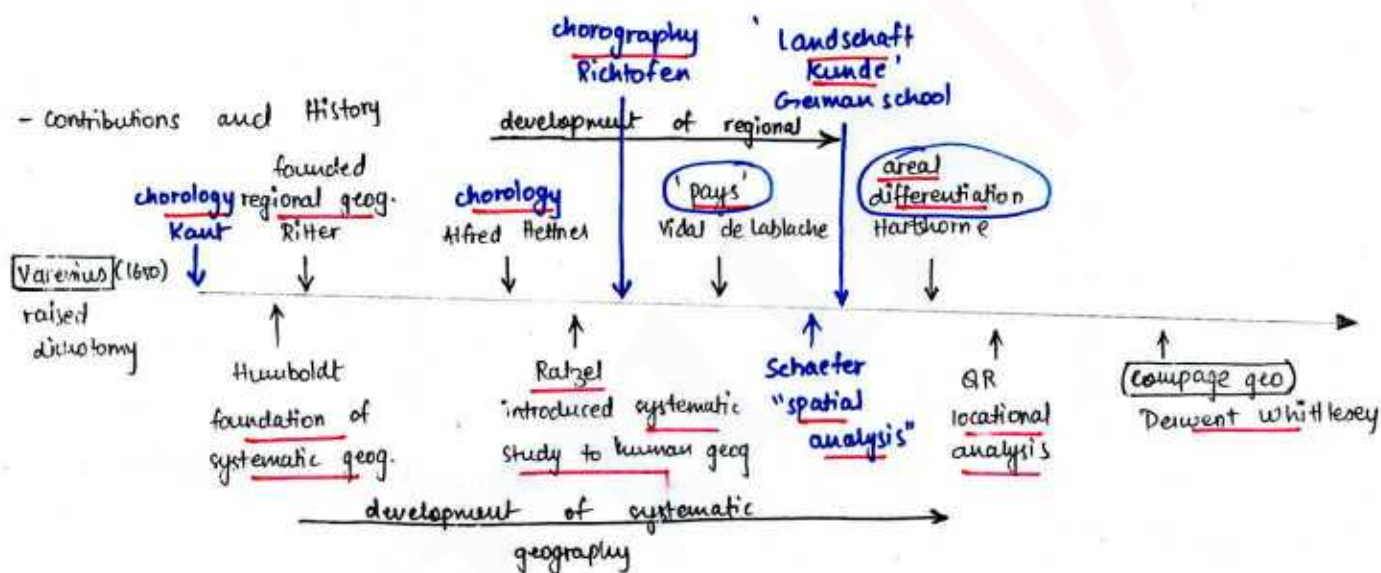 chorography
Richtofen
'Landschaft
Kunde'
German school
- Contributions and History
development of regional
chorology
Kant
founded
regional geog.
Ritter
chorology
Alfred Hettner
'pays'
Vidal de Lablache
areal
differentiation
Hartshorne
Varenius (1650)
raised
dichotomy
Humboldt
foundation of
systematic geog.
Ratzel
introduced systematic
study to human geog
Schaefer
"spatial
analysis"
QR
locational
analysis
compage geo
Derwent Whittlesey
development of systematic
geography